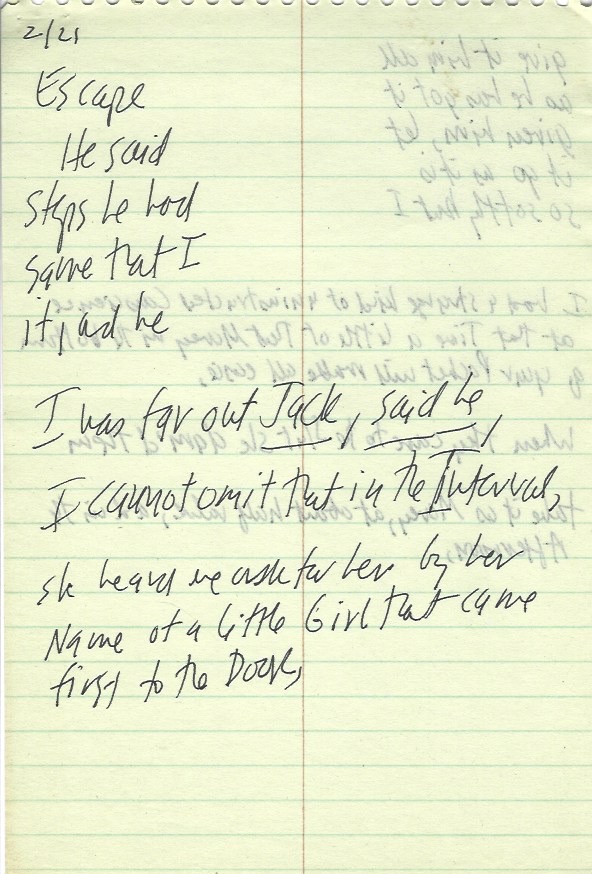 2/21
Escape
He said
steps he had
same that I
it, and he
I was far out Jack, said he,
I cannot omit that in the Interval,
she heard me ask for her by her
Name of a little Girl that came
first to the Door,